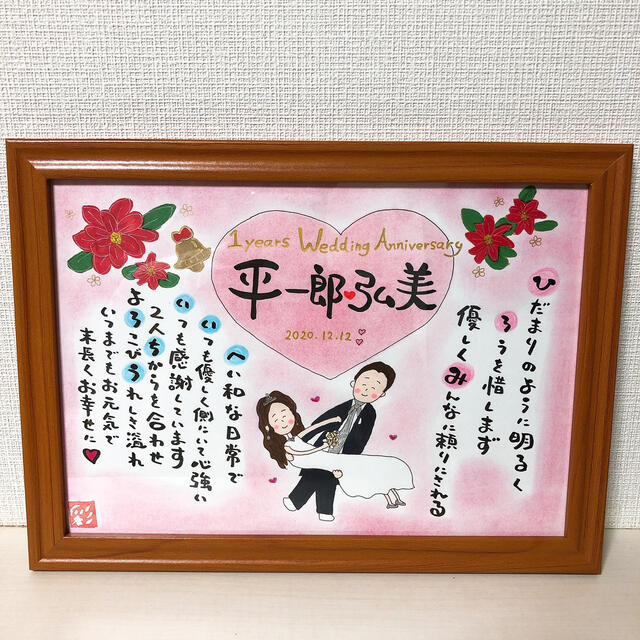 1 years Wedding Anniversary
平一郎♥弘美
2020.12.12
ひだまりのように明るく
ろうを惜しまず
優しくみんなに頼りにされる
へい和な日常で
いつも優しく側にいて心強い
いつも感謝しています
2人ちからを合わせ
よろこびうれしさ溢れ
いつまでもお元気で
末長くお幸せに♥